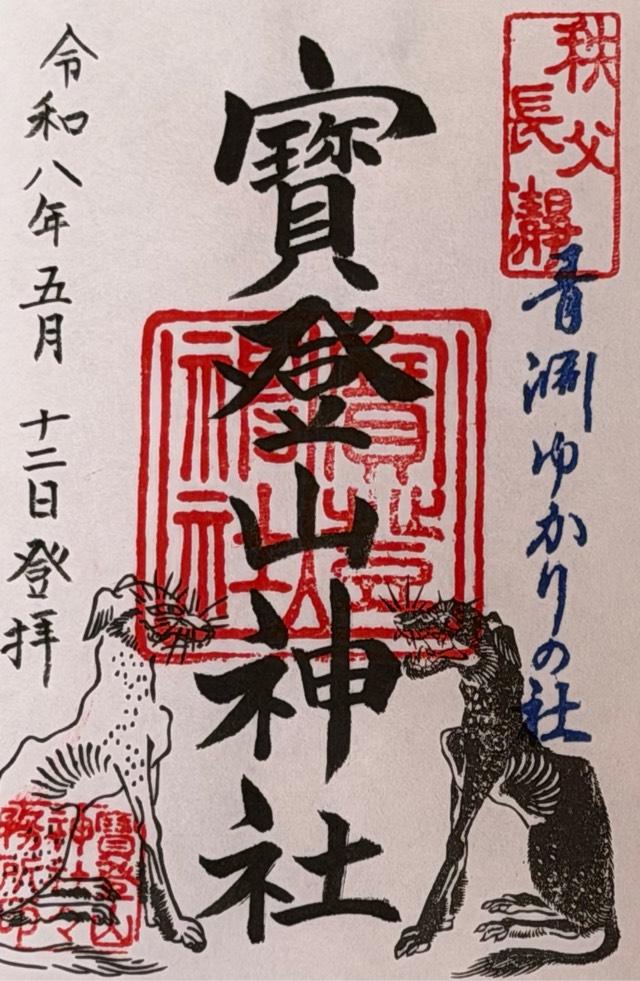 秩父
長瀞
青淵ゆかりの社
寳登山神社
寳登山
神社
令和八年五月十二日登拝
寳登山
神社々
務所印